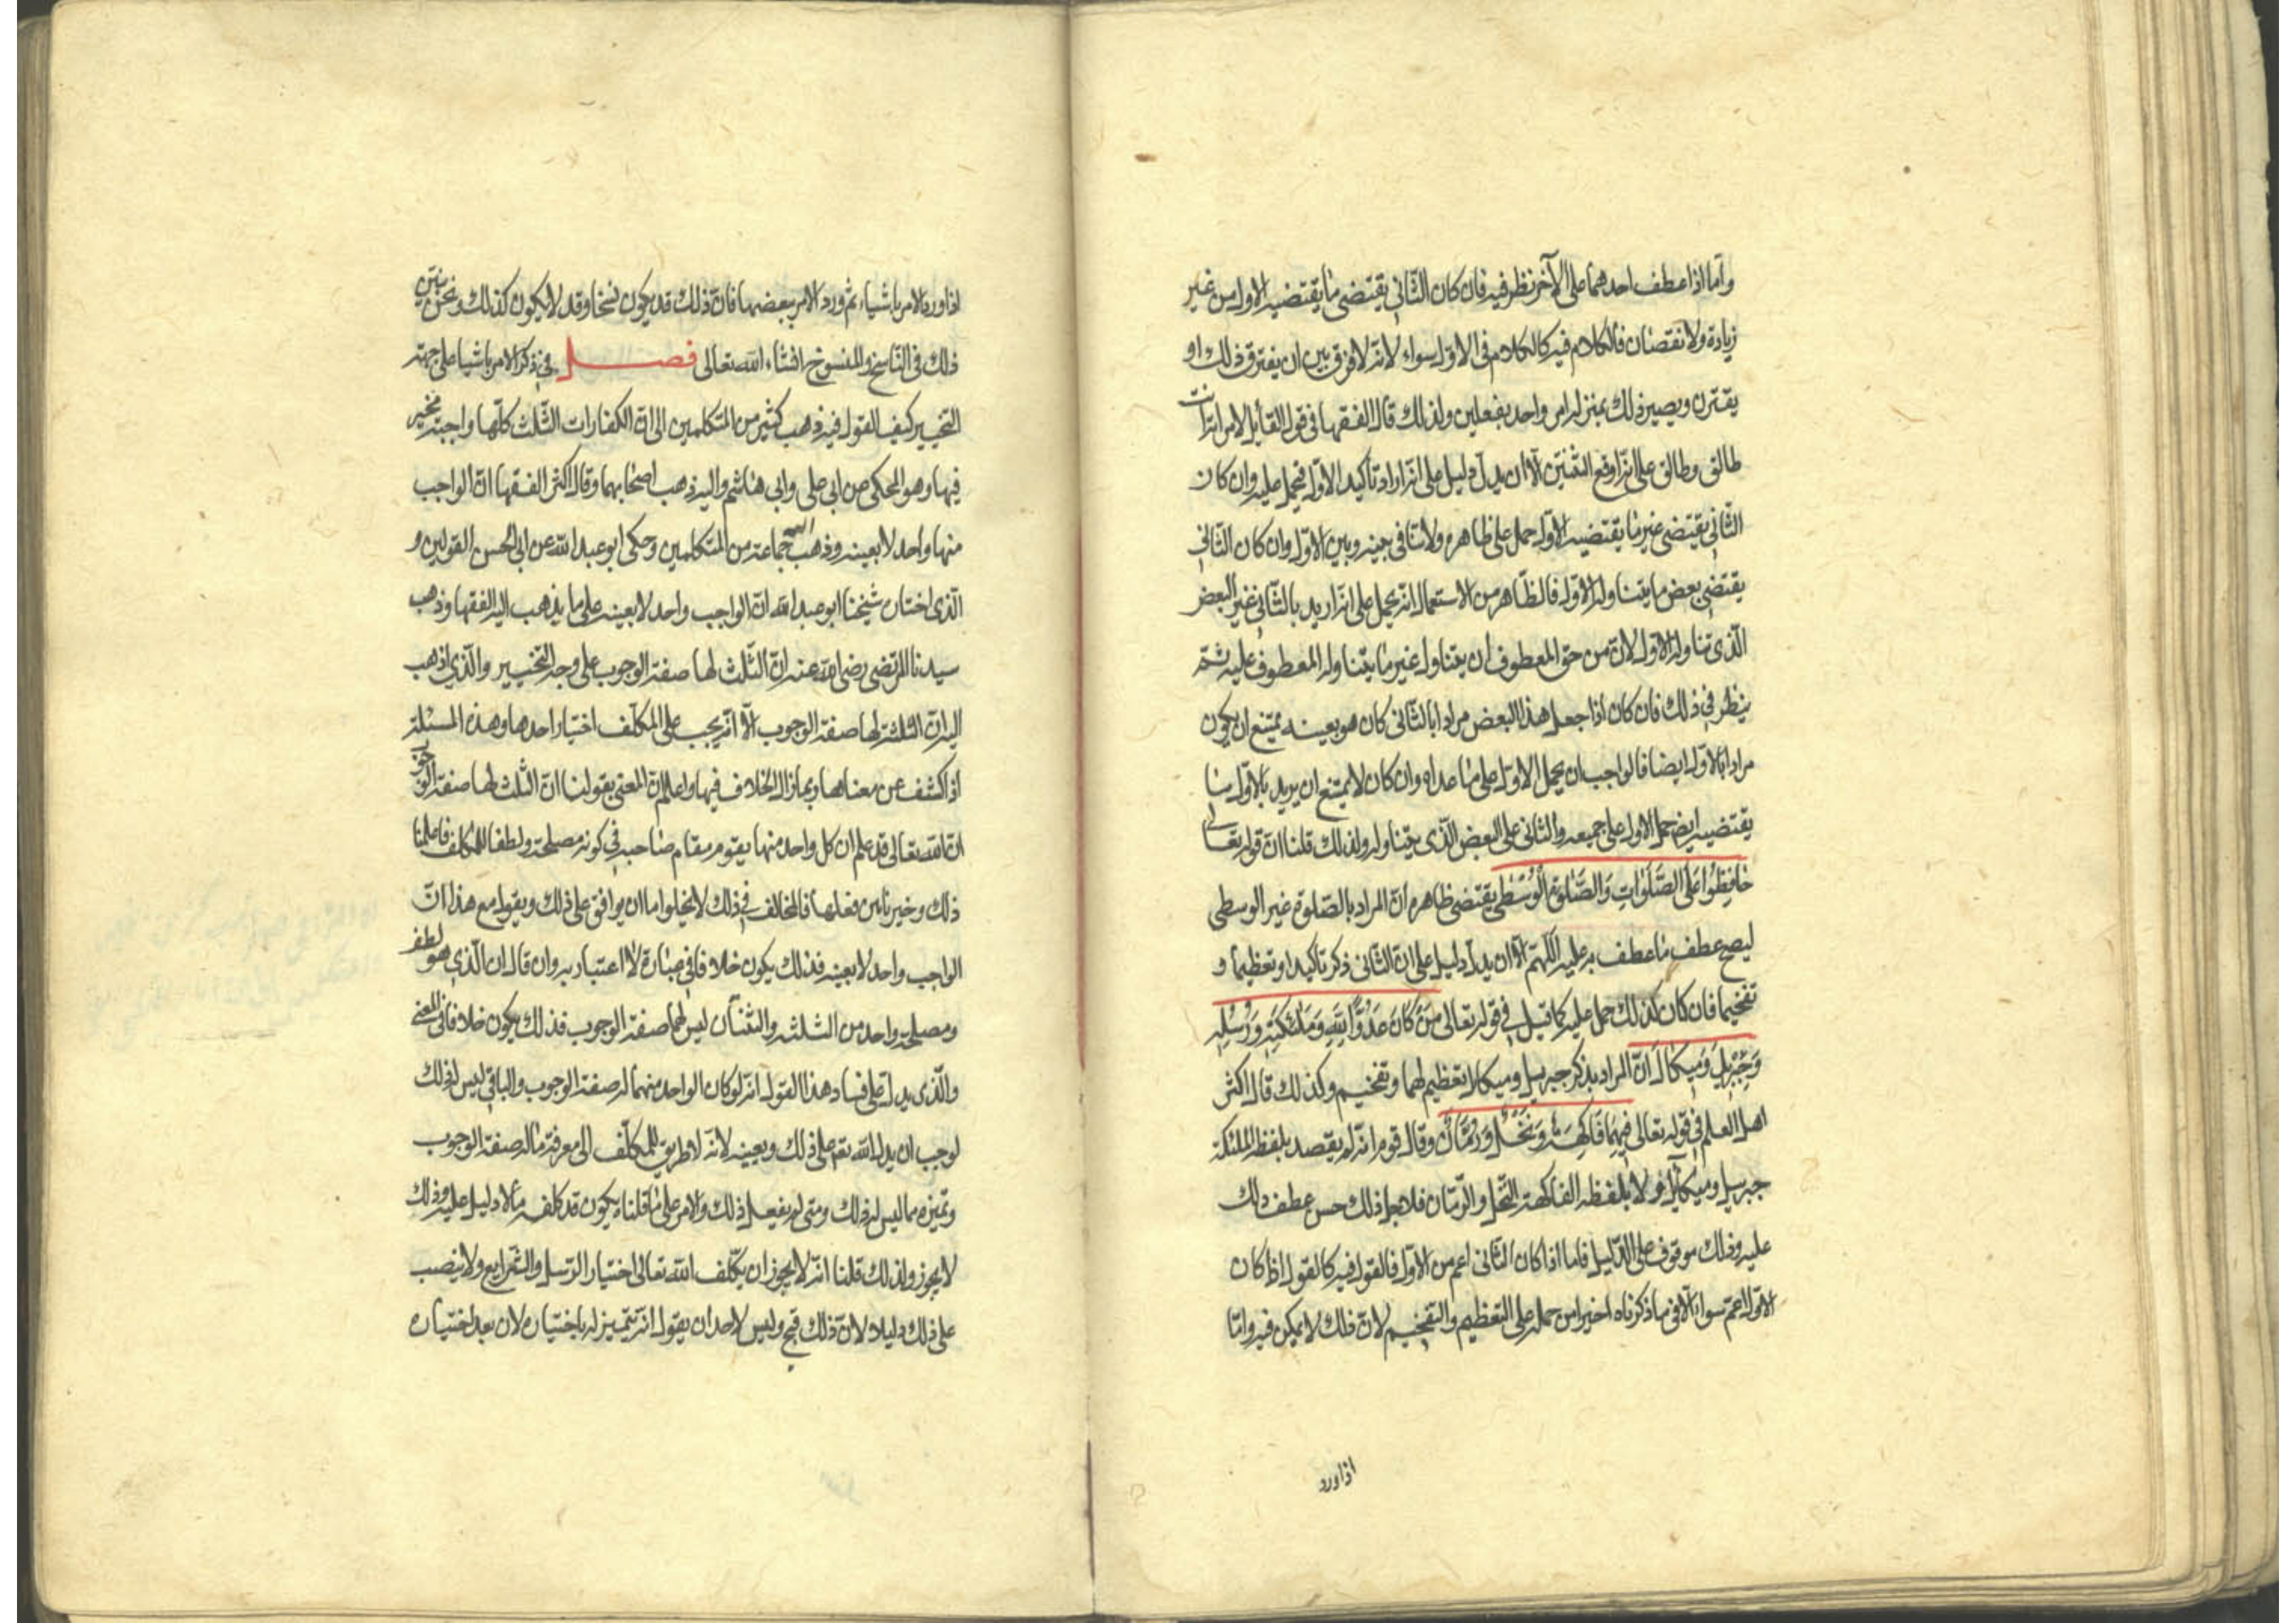 واما اذا عطف احدهما على الآخر نظر فيه فان كان الثاني يقتضى ما يقتضيه الاول من غير
زيادة ولا نقصان فالكلام فيه كالكلام في الاول سواء لانه لا فرق بين ان يفترق ذلك او
يقترن ويصير ذلك بمنزلة امر واحد بفعلين ولذلك قال الفقها في قول القائل لامراته انت
طالق وطالق على انه اوقع الثنتين الا ان يدل دليل على انه اراد تأكيد الاول فيحمل عليه وان كان
الثاني يقتضى غير ما يقتضيه الاول حمل على ظاهره ولا تنافى بينه وبين الاول وان كان الثاني
يقتضى بعض ما يتناوله الاول فالظاهر من الاستعمال انه يحمل على انه اريد بالثاني غير البعض
الذى تناوله الاول لان من حق المعطوف ان يتناول غير ما يتناوله المعطوف عليه ثم
ينظر في ذلك فان كان اذا جعل هذا البعض مرادا بالثاني كان هو بعينه يمتنع ان يكون
مرادا بالاول ايضا فالواجب ان يحمل الاول على ما عداه وان كان لا يمتنع ان يريد بالاول ما
يقتضيه ايضا حمل الاول على جميعه والثاني على البعض الذى يتناوله ولذلك قلنا ان قوله تعالى
حَافِظُوا عَلَى الصَّلَوَاتِ وَالصَّلوةِ الْوُسْطى يقتضى ظاهره ان المراد بالصلوة غير الوسطى
ليصح عطف ما عطف به عليه اللهم الا ان يدل دليل على ان الثاني ذكر تأكيدا وتعظيما و
تفخيما فان كان كذلك حمل عليه كما قيل في قوله تعالى مَنْ كَانَ عَدُوًّا لِلّهِ وَمَلئِكَتِه وَرُسُلِه
وَجِبْرِيلَ وَمِيكَالَ انّ المراد بذكر جبريل وميكال تعظيم لهما وتفخيم وكذلك قال اكثر
اهل العلم في قوله تعالى فِيهِمَا فَاكِهَةٌ وَنَخْلٌ وَرُمَّانٌ وقال قوم انه لم يقصد بلفظ الملئكة
جبريل وميكائيل ولا بلفظه الفاكهة النخل والرمان فلاجل ذلك حسن عطف ذلك
عليه وذلك موقوف على الدليل فاما اذا كان الثاني اعم من الاول فالقول فيه كالقول اذا كان
الاول اعم سواء الا في ما ذكرناه اخيرا من حمله على التعظيم والتفخيم لان ذلك لا يمكن فيه واما
اذا ورد
اذا ورد الامر باشياء ثم ورد الامر ببعضها فان ذلك قد يكون نسخا وقد لا يكون كذلك ونحن نبين
ذلك في الناسخ والمنسوخ انشاء الله تعالى فصل في ذكر الامر باشيا على جهة
التخيير كيف القول فيه ذهب كثير من المتكلمين الى ان الكفارات الثلث كلها واجبة مخير
فيها وهو المحكى عن ابى على وابى هاشم واليه ذهب اصحابهما وقال اكثر الفقها ان الواجب
منها واحد لا بعينه وذهب اليه جماعة من المتكلمين وحكى ابو عبد الله عن ابى الحسن القولين و
الذى اختاره شيخنا ابو عبد الله ان الواجب واحد لا بعينه على ما يذهب اليه الفقها وذهب
سيدنا المرتضى رضى الله عنه ان الثلث لها صفة الوجوب على وجه التخيير والذى اذهب
اليه ان الثلثة لها صفة الوجوب الا انه يجب على المكلف اختيار احدها وهذه المسئلة
اذا كشف عن معناها ربما زال الخلاف فيها واعلم ان المعنى بقولنا ان الثلث لها صفة الوجوب
ان الله تعالى قد علم ان كل واحد منها يقوم مقام صاحبه في كونه مصلحة ولطفا للمكلف فاعلمنا
ذلك وخيرنا بين فعلها فالمخالف في ذلك لا يخلوا اما ان يوافق على ذلك ويقول مع هذا ان
الواجب واحد لا بعينه فذلك يكون خلافا في عبارة لا اعتبار به وان قال ان الذى هو لطف
ومصلحة واحد من الثلثة والثنتان ليس لهما صفة الوجوب فذلك يكون خلافا في المعنى
والذى يدل على فساد هذا القول انه لو كان الواحد منهما له صفة الوجوب والباقى ليس له ذلك
لوجب ان يدل الله تعم على ذلك ويعينه لانه لا طريق للمكلف الى معرفة ما له صفة الوجوب
وتميزه مما ليس له ذلك ومتى لم يفعل ذلك والامر على ما قلناه يكون قد كلفه ما لا دليل عليه وذلك
لا يجوز ولذلك قلنا انه لا يجوز ان يكلف الله تعالى اختيار الرسل والشرايع ولا ينصب
على ذلك دليلا لان ذلك قبيح وليس لاحد ان يقول انه يتميز له باختياره لان بعد اختياره